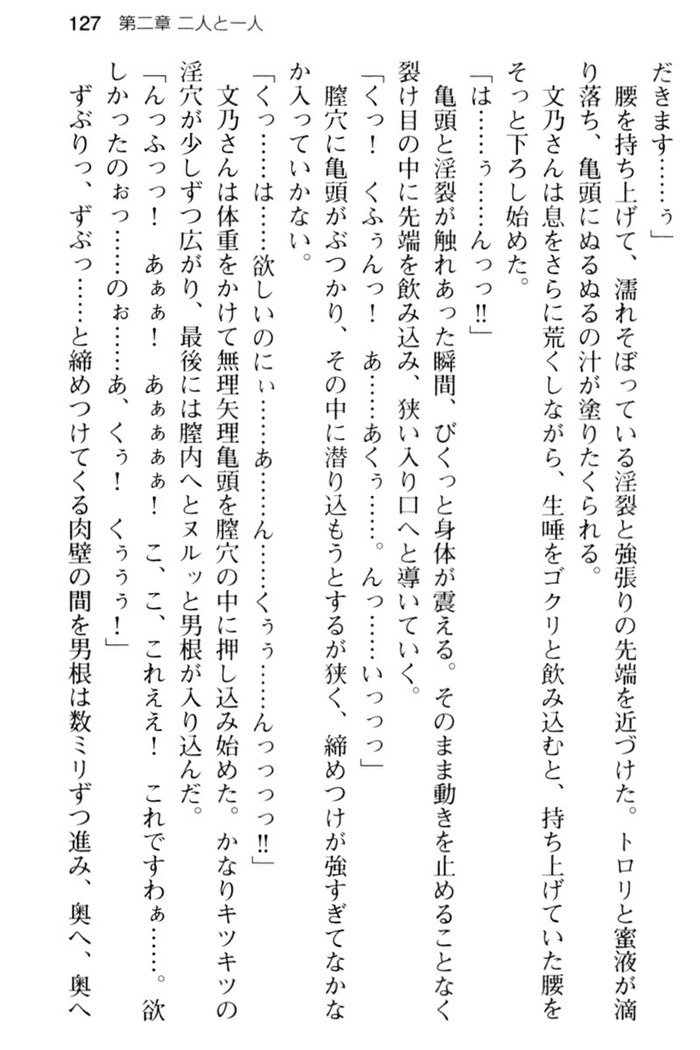 127 第二章 二人と一人
だきます……ぅ」
　腰を持ち上げて、濡れそぼっている淫裂と強張りの先端を近づけた。トロリと蜜液が滴
り落ち、亀頭にぬるぬるの汁が塗りたくられる。
　文乃さんは息をさらに荒くしながら、生唾をゴクリと飲み込むと、持ち上げていた腰を
そっと下ろし始めた。
「は……ぅ……んっっ!!」
　亀頭と淫裂が触れあった瞬間、びくっと身体が震える。そのまま動きを止めることなく
裂け目の中に先端を飲み込み、狭い入り口へと導いていく。
「くっ！　くふぅんっ！　あ……あくぅ……。んっ……いっっっ」
　膣穴に亀頭がぶつかり、その中に潜り込もうとするが狭く、締めつけが強すぎてなかな
か入っていかない。
「くっ……は……欲しいのにぃ……あ……ん……くぅぅ……んっっっっ!!」
　文乃さんは体重をかけて無理矢理亀頭を膣穴の中に押し込み始めた。かなりキツキツの
淫穴が少しずつ広がり、最後には膣内へとヌルッと男根が入り込んだ。
「んっふっっ！　あぁぁ！　あぁぁぁぁ！　こ、こ、これええ！　これですわぁ……。欲
しかったのぉっ……のぉ……あ、くぅ！　くぅぅぅ！」
　ずぶりっ、ずぶっ……と締めつけてくる肉壁の間を男根は数ミリずつ進み、奥へ、奥へ